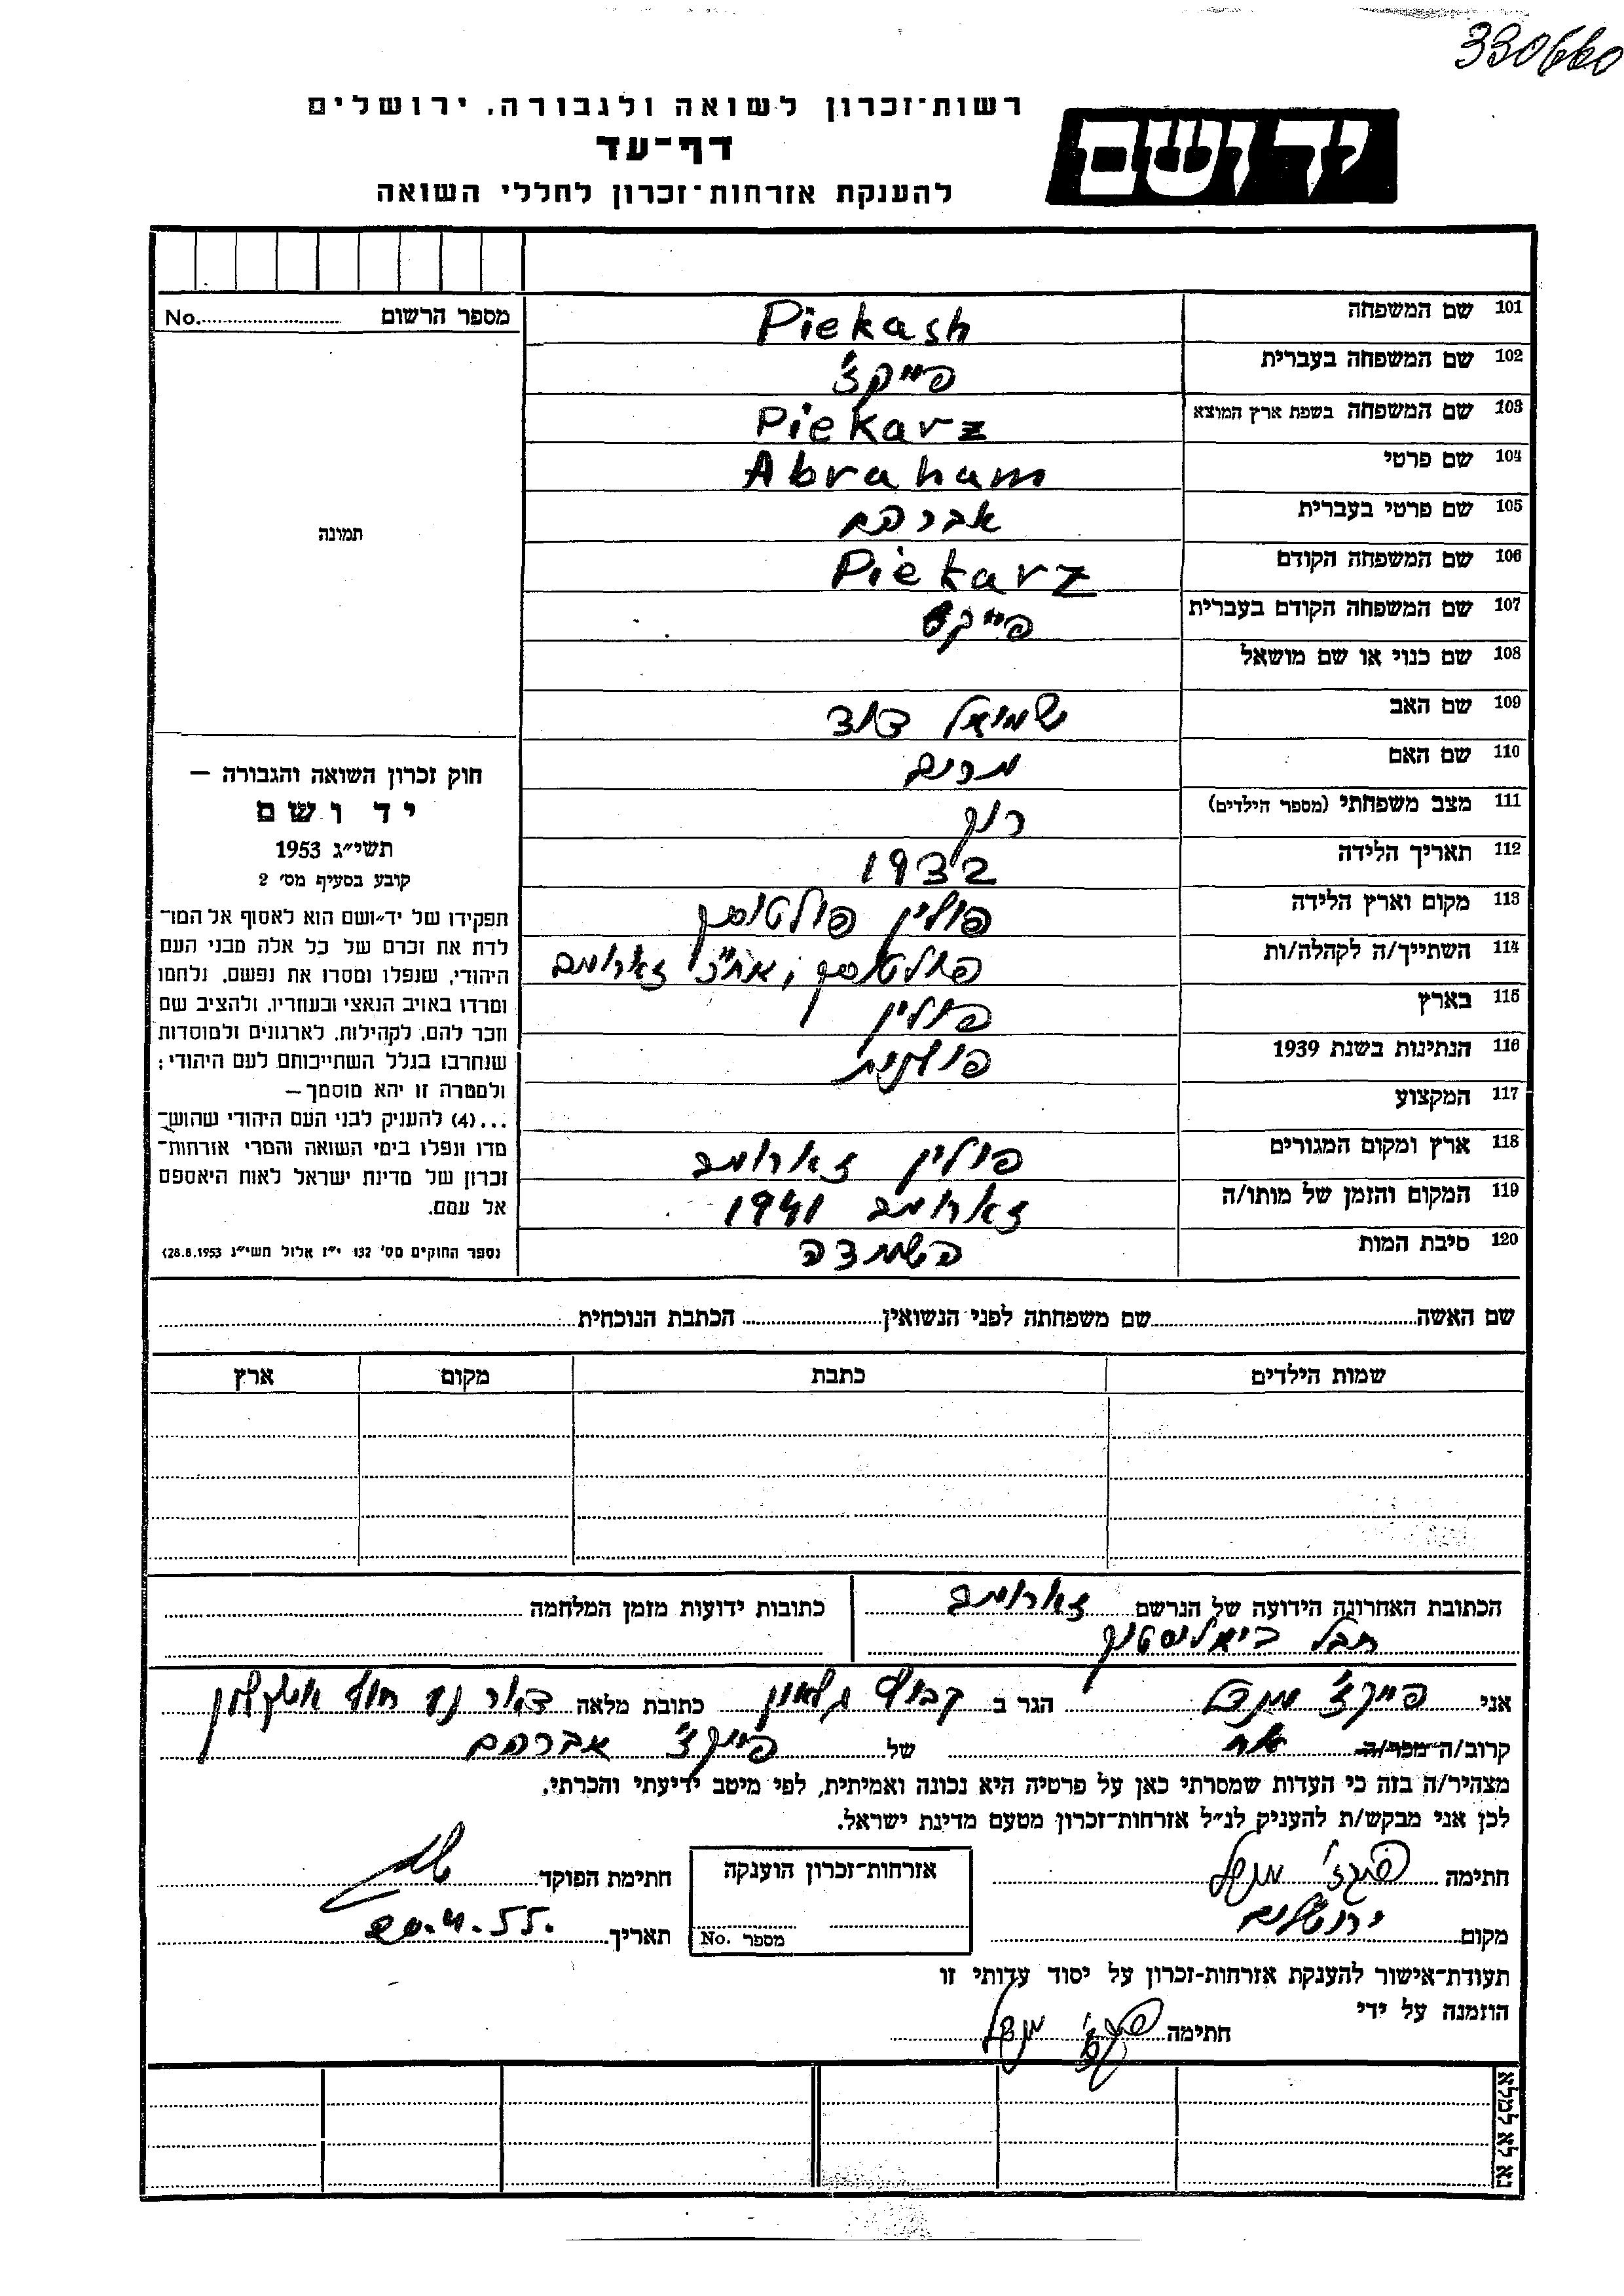 330660
רשות־זכרון לשואה ולגבורה, ירושלים
דף־עד
להענקת אזרחות־זכרון לחללי השואה
יד ושם
מספר הרשום No.
תמונה
חוק זכרון השואה והגבורה —
יד ושם
תשי״ג 1953
קובע בסעיף מס׳ 2
תפקידו של יד־ושם הוא לאסוף אל המו־
לדת את זכרם של כל אלה מבני העם
היהודי, שנפלו ומסרו את נפשם, נלחמו
ומרדו באויב הנאצי ובעוזריו, ולהציב שם
וזכר להם, לקהילות, לארגונים ולמוסדות
שנחרבו בגלל השתייכותם לעם היהודי;
ולמטרה זו יהא מוסמך—
...(4) להעניק לבני העם היהודי שהוש־
מדו ונפלו בימי השואה והמרי אזרחות־
זכרון של מדינת ישראל לאות היאספם
אל עמם.
(ספר החוקים מס׳ 132 י״ז אלול תשי״ג 28.8.1953)
101 שם המשפחה Piekash
102 שם המשפחה בעברית פייקז׳
103 שם המשפחה בשפת ארץ המוצא Piekarz
104 שם פרטי Abraham
105 שם פרטי בעברית אברהם
106 שם המשפחה הקודם Piekarz
107 שם המשפחה הקודם בעברית
108 שם כנוי או שם מושאל
109 שם האב שמואל דוד
110 שם האם מרים
111 מצב משפחתי (מספר הילדים) רווק
112 תאריך הלידה 1932
113 מקום וארץ הלידה פולין פולטוסק
114 השתייך/ה לקהלה/ות פולטוסק, אח״כ זארומב
115 בארץ פולין
116 הנתינות בשנת 1939 פולנית
117 המקצוע
118 ארץ ומקום המגורים פולין זארומב
119 המקום והזמן של מותו/ה זארומב 1941
120 סיבת המות השמדה
שם האשה שם משפחתה לפני הנשואין הכתבת הנוכחית
שמות הילדים כתבת מקום ארץ
הכתובת האחרונה הידועה של הנרשם זארומב
חבל ביאליסטוק
כתובות ידועות מזמן המלחמה
אני פייקז׳ מנדל הגר ב קבוץ גלאון כתובת מלאה דאר נע חוף אשקלון
קרוב/ה מכר/ה אח של פייקז׳ אברהם
מצהיר/ה בזה כי העדות שמסרתי כאן על פרטיה היא נכונה ואמיתית, לפי מיטב ידיעתי והכרתי.
לכן אני מבקש/ת להעניק לנ״ל אזרחות־זכרון מטעם מדינת ישראל.
חתימה פיקז׳ מנדל
אזרחות־זכרון הוענקה
חתימת הפוקד
מקום ירושלים
מספר No.
תאריך 20.4.55.
תעודת־אישור להענקת אזרחות־זכרון על יסוד עדותי זו
הוזמנה על ידי
חתימה פיקז׳ מנדל
נא לא למלא